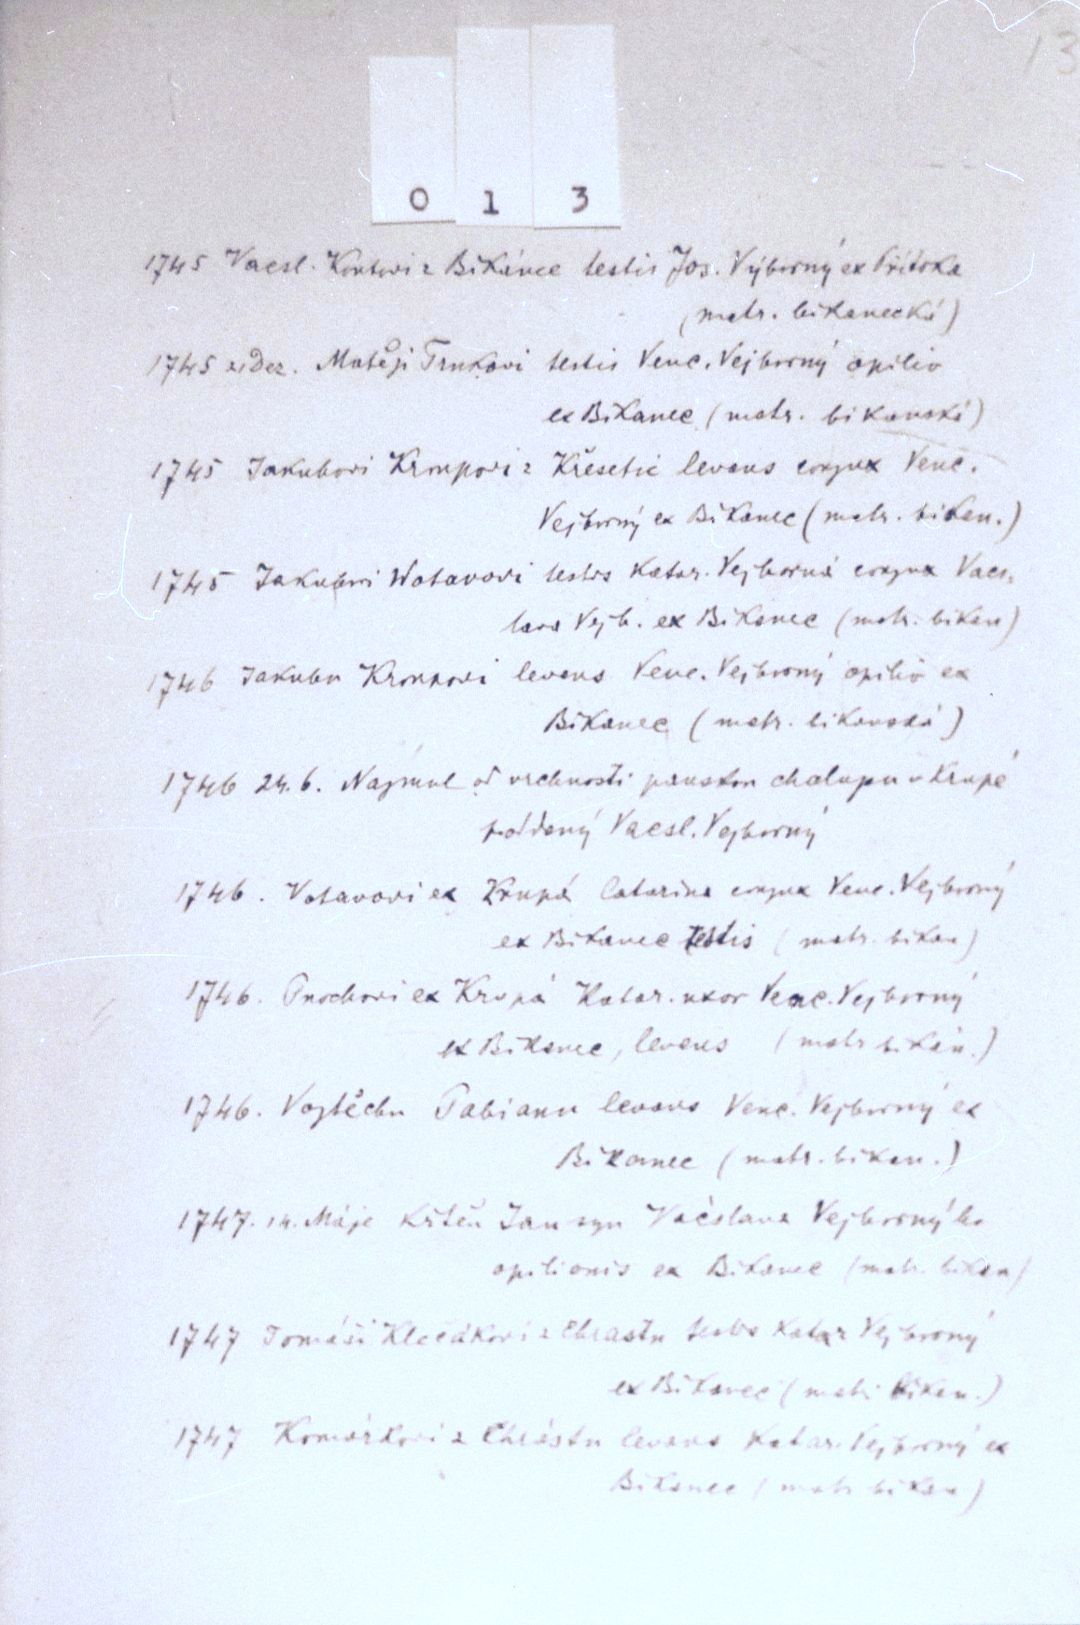 13
0 1 3
1745 Vacsl. Kontovi z Bikánce testis Jos. Výborný ex Přítoka
(matr. bikanecká)
1745 21 Dez. Matěji Trnkovi testis Venc. Vejborný opilio
ex Bikanec (matr. bikanská)
1745 Jakubovi Kroupovi z Křesetic levans conjux Venc.
Vejborný ex Bikanec (matr. bikan.)
1745 Jakubovi Wotavovi testis Katar. Vejborná conjux Vacs-
lava Vejb. ex Bikanec (matr. bikan)
1746 Jakubu Kroupovi levans Venc. Vejborný opilio ex
Bikanec (matr. bikanská)
1746 24.6. Najmul od vrchnosti panskou chalupu v Krupé
poddaný Vacsl. Vejborný
1746. Votavovi ex Krupá Catarina conjux Venc. Vejborný
ex Bikanec testis (matr. bikan)
1746. Prochovi ex Krupá Katar. uxor Venc. Vejborný
ex Bikanec, levans (matr bikán.)
1746. Vojtěchu Fabianu levans Venc. Vejborný ex
Bikanec (matr. bikan.)
1747. 14. Máje křtěn Jan syn Váčslava Vejborného
opilionis ex Bikanec (matr. bikan)
1747 Tomáši Klečákovi z Chrástu testis Katar Vejborný
ex Bikanec (matr. bikan.)
1747 Komárkovi z Chrástu levans Katar. Vejborný ex
Bikanec (matr bikan)